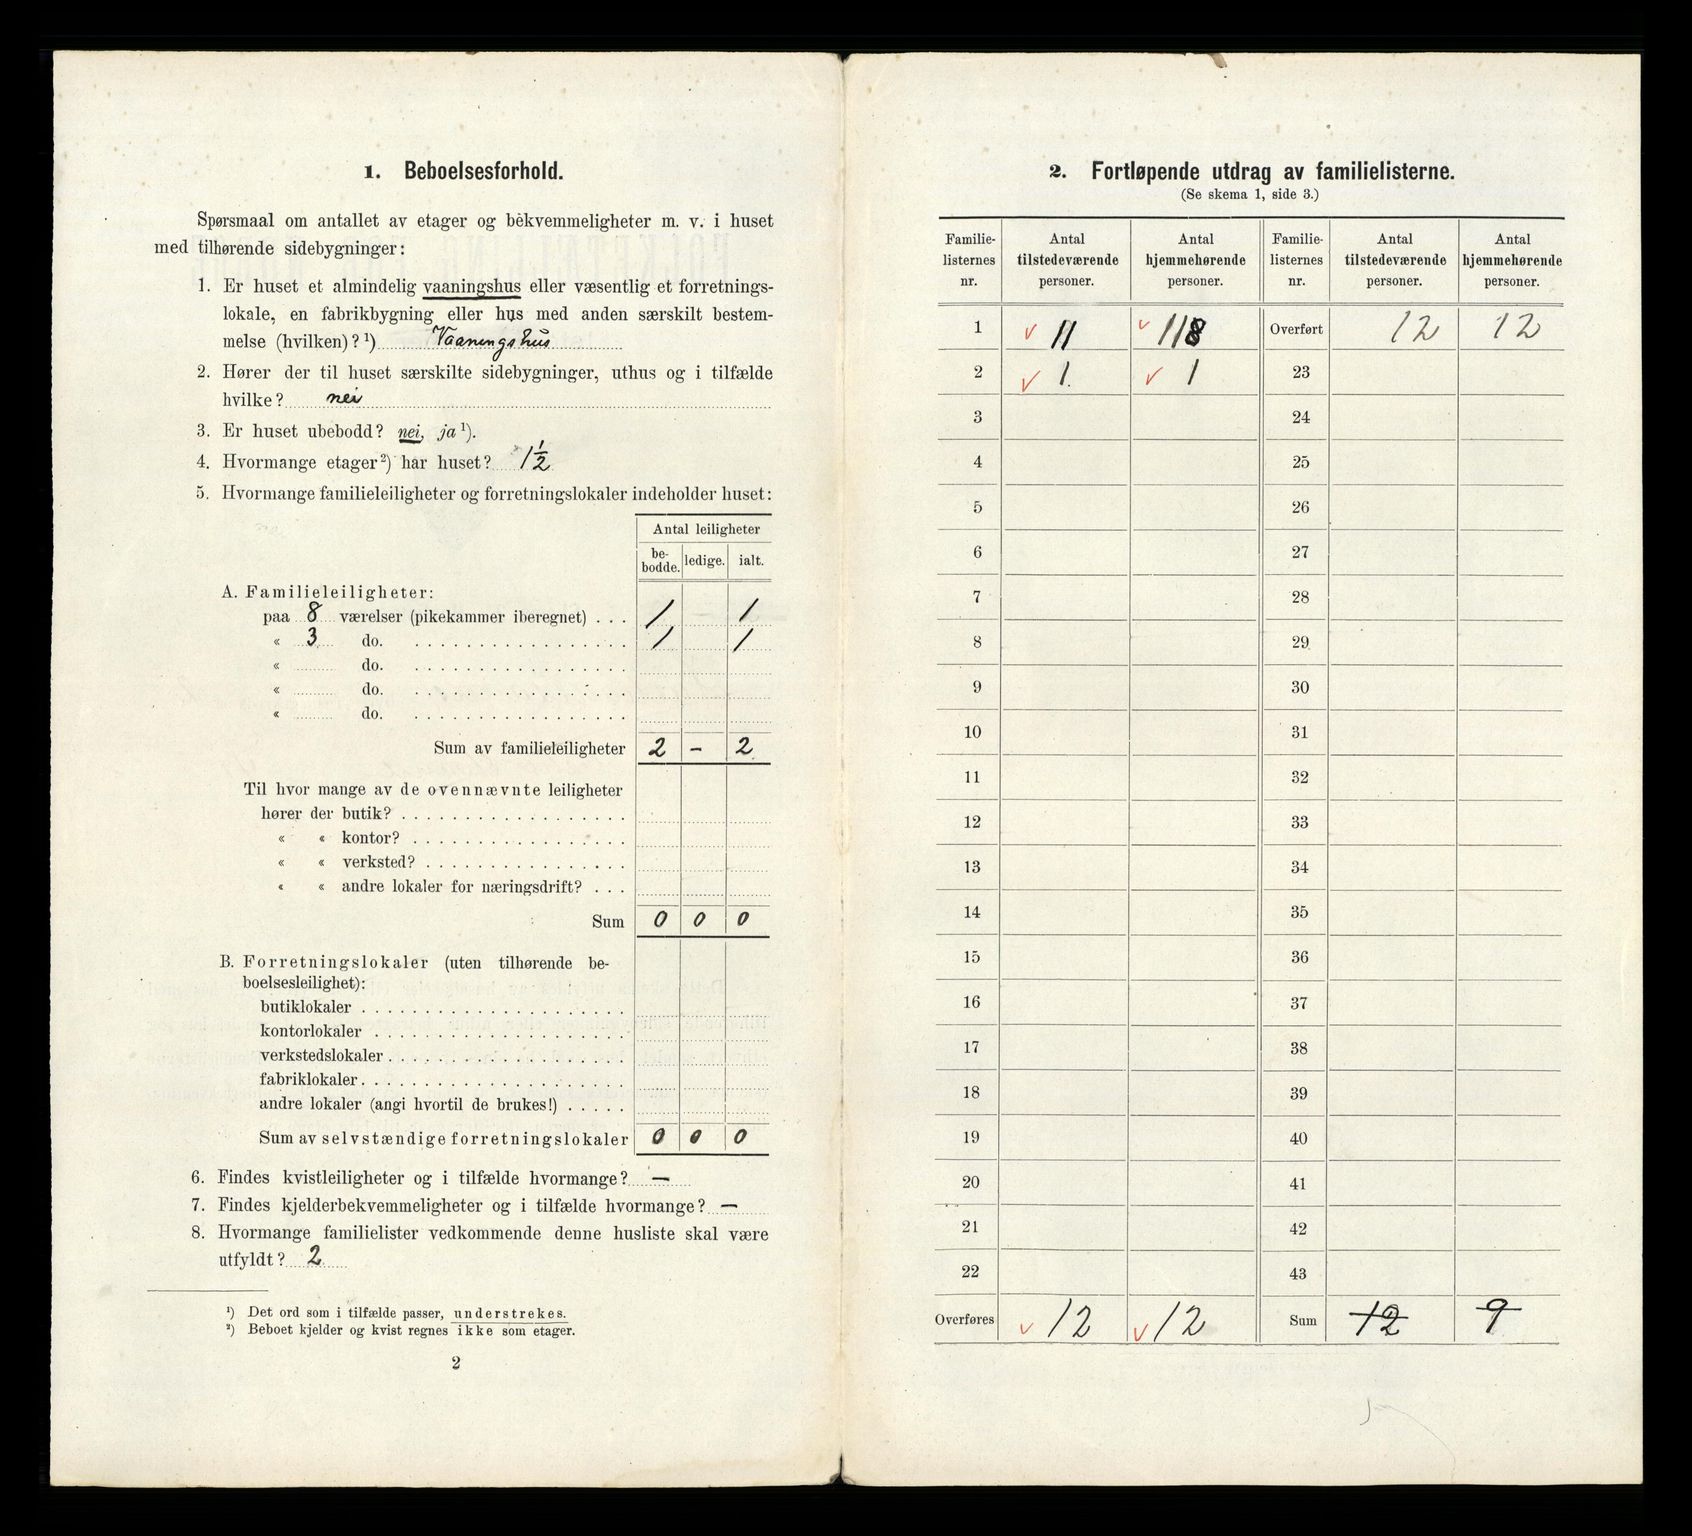 1. Beboelsesforhold.
Spørsmaal om antallet av etager og bekvemmeligheter m. v. i huset
med tilhørende sidebygninger:
1. Er huset et almindelig vaaningshus eller væsentlig et forretnings-
lokale, en fabrikbygning eller hus med anden særskilt bestem-
melse (hvilken)?¹) Vaaningshus
2. Hører der til huset særskilte sidebygninger, uthus og i tilfælde
hvilke? nei
3. Er huset ubebodd? nei, ja ¹).
4. Hvormange etager²) har huset? 1½
5. Hvormange familieleiligheter og forretningslokaler indeholder huset:
Antal leiligheter
be-
bodde. ledige. ialt.
A. Familieleiligheter:
paa 8 værelser (pikekammer iberegnet) . . . 1 1
« 3 do. . . . . . . . . . . . . . . . . . 1 1
« do. . . . . . . . . . . . . . . . . .
« do. . . . . . . . . . . . . . . . . .
« do. . . . . . . . . . . . . . . . . .
Sum av familieleiligheter 2 – 2
Til hvor mange av de ovennævnte leiligheter
hører der butik? . . . . . . . . . . . . . . . . . .
« « kontor? . . . . . . . . . . . . . . . . .
« « verksted? . . . . . . . . . . . . . . . .
« « andre lokaler for næringsdrift? . . .
Sum 0 0 0
B. Forretningslokaler (uten tilhørende be-
boelsesleilighet):
butiklokaler . . . . . . . . . . . . . . . . . . . . .
kontorlokaler . . . . . . . . . . . . . . . . . . . .
verkstedslokaler . . . . . . . . . . . . . . . . . . .
fabriklokaler . . . . . . . . . . . . . . . . . . . . .
andre lokaler (angi hvortil de brukes!) . . . . .
Sum av selvstændige forretningslokaler 0 0 0
6. Findes kvistleiligheter og i tilfælde hvormange? –
7. Findes kjelderbekvemmeligheter og i tilfælde hvormange? –
8. Hvormange familielister vedkommende denne husliste skal være
utfyldt? 2
¹) Det ord som i tilfælde passer, understrekes.
²) Beboet kjelder og kvist regnes ikke som etager.
2
2. Fortløpende utdrag av familielisterne.
(Se skema 1, side 3.)
Familie-
listernes
nr. Antal
tilstedeværende
personer. Antal
hjemmehørende
personer. Familie-
listernes
nr. Antal
tilstedeværende
personer. Antal
hjemmehørende
personer.
1 11 118 Overført 12 12
2 1 1 23
3 24
4 25
5 26
6 27
7 28
8 29
9 30
10 31
11 32
12 33
13 34
14 35
15 36
16 37
17 38
18 39
19 40
20 41
21 42
22 43
Overføres 12 12 Sum 12 9